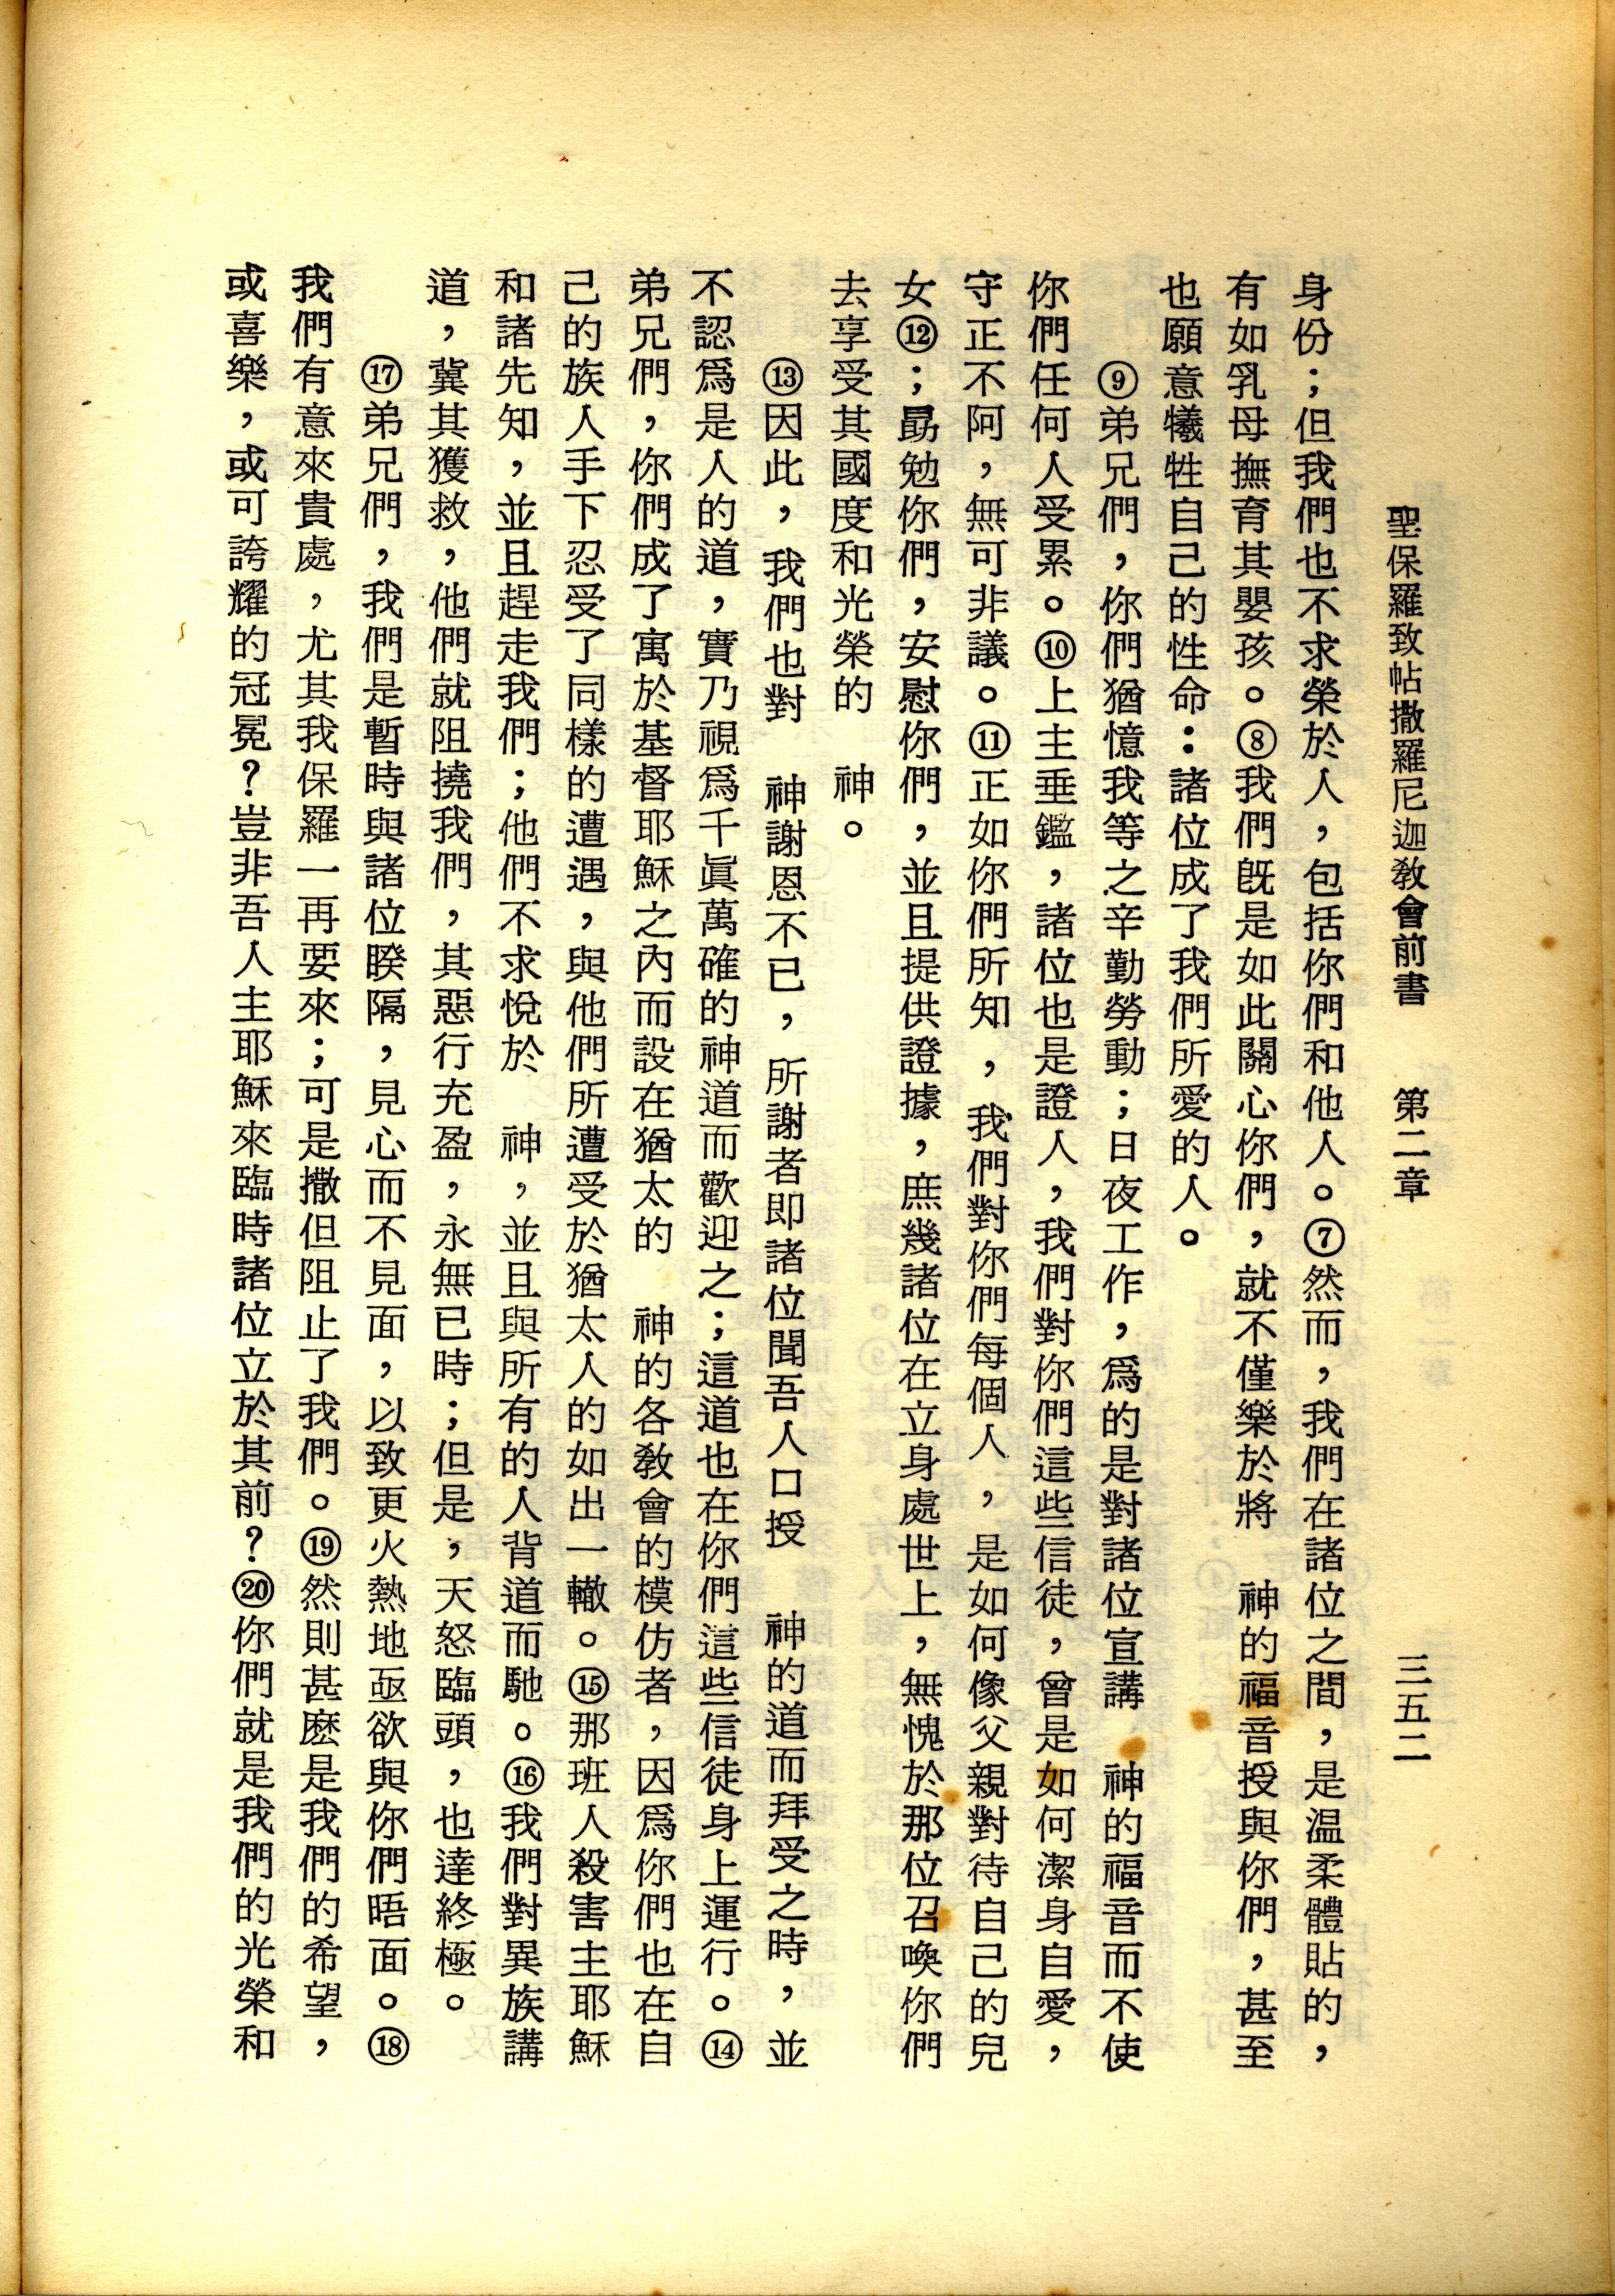 聖保羅致帖撒羅尼迦教會前書　第二章　三五二
身份；但我們也不求榮於人，包括你們和他人。⑦然而，我們在諸位之間，是温柔體貼的，
有如乳母撫育其嬰孩。⑧我們旣是如此關心你們，就不僅樂於將　神的福音授與你們，甚至
也願意犧牲自己的性命：諸位成了我們所愛的人。
⑨弟兄們，你們猶憶我等之辛勤勞動；日夜工作，爲的是對諸位宣講　神的福音而不使
你們任何人受累。⑩上主垂鑑，諸位也是證人，我們對你們這些信徒，曾是如何潔身自愛，
守正不阿，無可非議。⑪正如你們所知，我們對你們每個人，是如何像父親對待自己的兒
女⑫；勗勉你們，安慰你們，並且提供證據，庶幾諸位在立身處世上，無愧於那位召喚你們
去享受其國度和光榮的　神。
⑬因此，我們也對　神謝恩不已，所謝者即諸位聞吾人口授　神的道而拜受之時，並
不認爲是人的道，實乃視爲千眞萬確的神道而歡迎之；這道也在你們這些信徒身上運行。⑭
弟兄們，你們成了寓於基督耶穌之內而設在猶太的　神的各教會的模仿者，因爲你們也在自
己的族人手下忍受了同樣的遭遇，與他們所遭受於猶太人的如出一轍。⑮那班人殺害主耶穌
和諸先知，並且趕走我們；他們不求悅於　神，並且與所有的人背道而馳。⑯我們對異族講
道，冀其獲救，他們就阻撓我們，其惡行充盈，永無已時；但是，天怒臨頭，也達終極。
⑰弟兄們，我們是暫時與諸位睽隔，見心而不見面，以致更火熱地亟欲與你們晤面。⑱
我們有意來貴處，尤其我保羅一再要來；可是撒但阻止了我們。⑲然則甚麽是我們的希望，
或喜樂，或可誇耀的冠冕？豈非吾人主耶穌來臨時諸位立於其前？⑳你們就是我們的光榮和